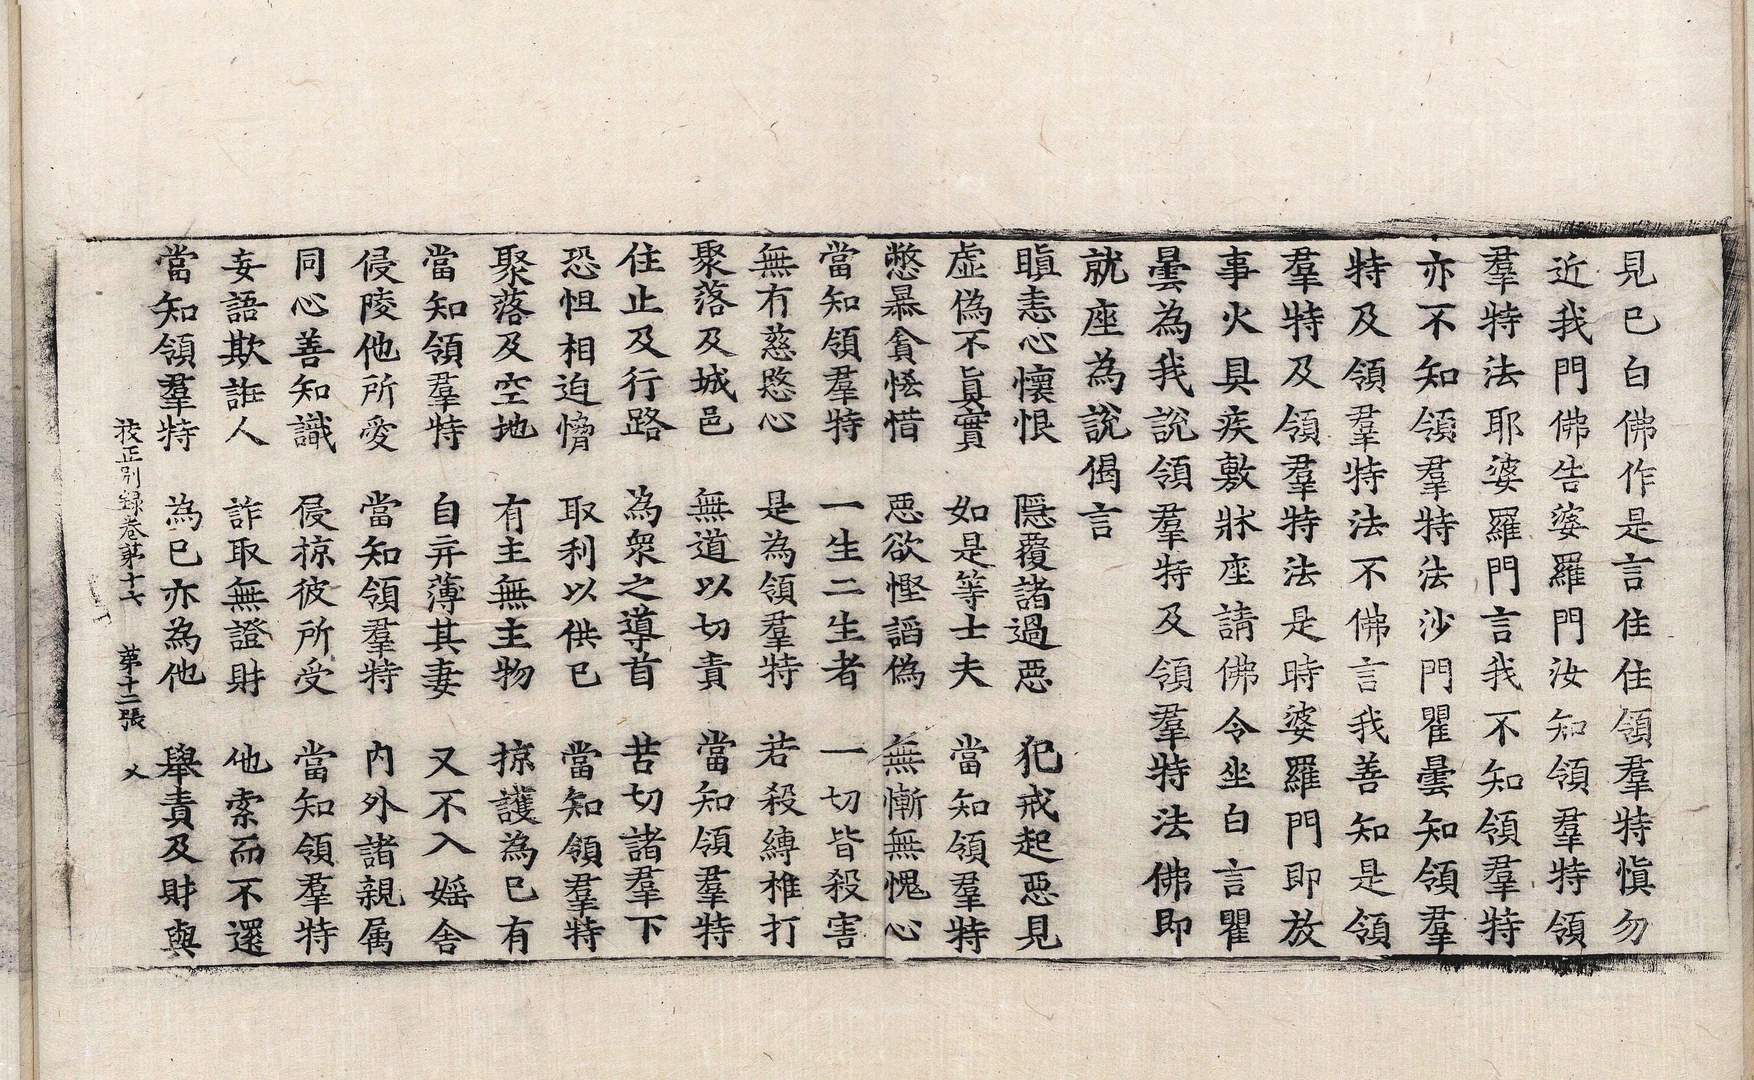 見已白佛作是言住住領羣特愼勿
近我門佛告婆羅門汝知領羣特領
羣特法耶婆羅門言我不知領羣特
亦不知領羣特法沙門瞿曇知領羣
特及領羣特法不佛言我善知是領
羣特及領羣特法是時婆羅門即放
事火具疾敷牀座請佛令坐白言瞿
曇為我說領羣特及領羣特法佛即
就座為說偈言
瞋恚心懷恨 隱覆諸過惡 犯戒起惡見
虛偽不眞實 如是等士夫 當知領羣特
憋暴貪悋惜 惡欲慳諂偽 無慚無愧心
當知領羣特 一生二生者 一切皆殺害
無有慈愍心 是為領羣特 若殺縛椎打
聚落及城邑 無道以切責 當知領羣特
住止及行路 為衆之導首 苦切諸羣下
恐怛相迫愶 取利以供已 當知領羣特
聚落及空地 有主無主物 掠護為已有
當知領羣特 自弃薄其妻 又不入婬舍
侵陵他所愛 當知領羣特 內外諸親属
同心善知識 侵掠彼所受 當知領羣特
妄語欺誑人 詐取無證財 他索而不還
當知領羣特 為已亦為他 舉責及財與
挍正別録卷苐十七 苐十二張 乂